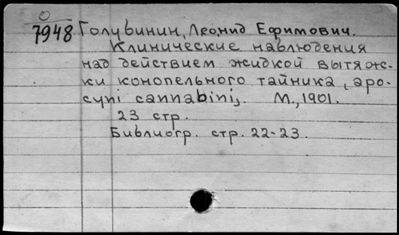 О
7948 Голубинин, Леонид Ефимович.
Клинические наблюдения
над действием жидкой вытяж-
ки конопельного тайника, apo-
cyni cannabinij. М., 1901.
23 стр.
Библиогр. стр. 22-23.